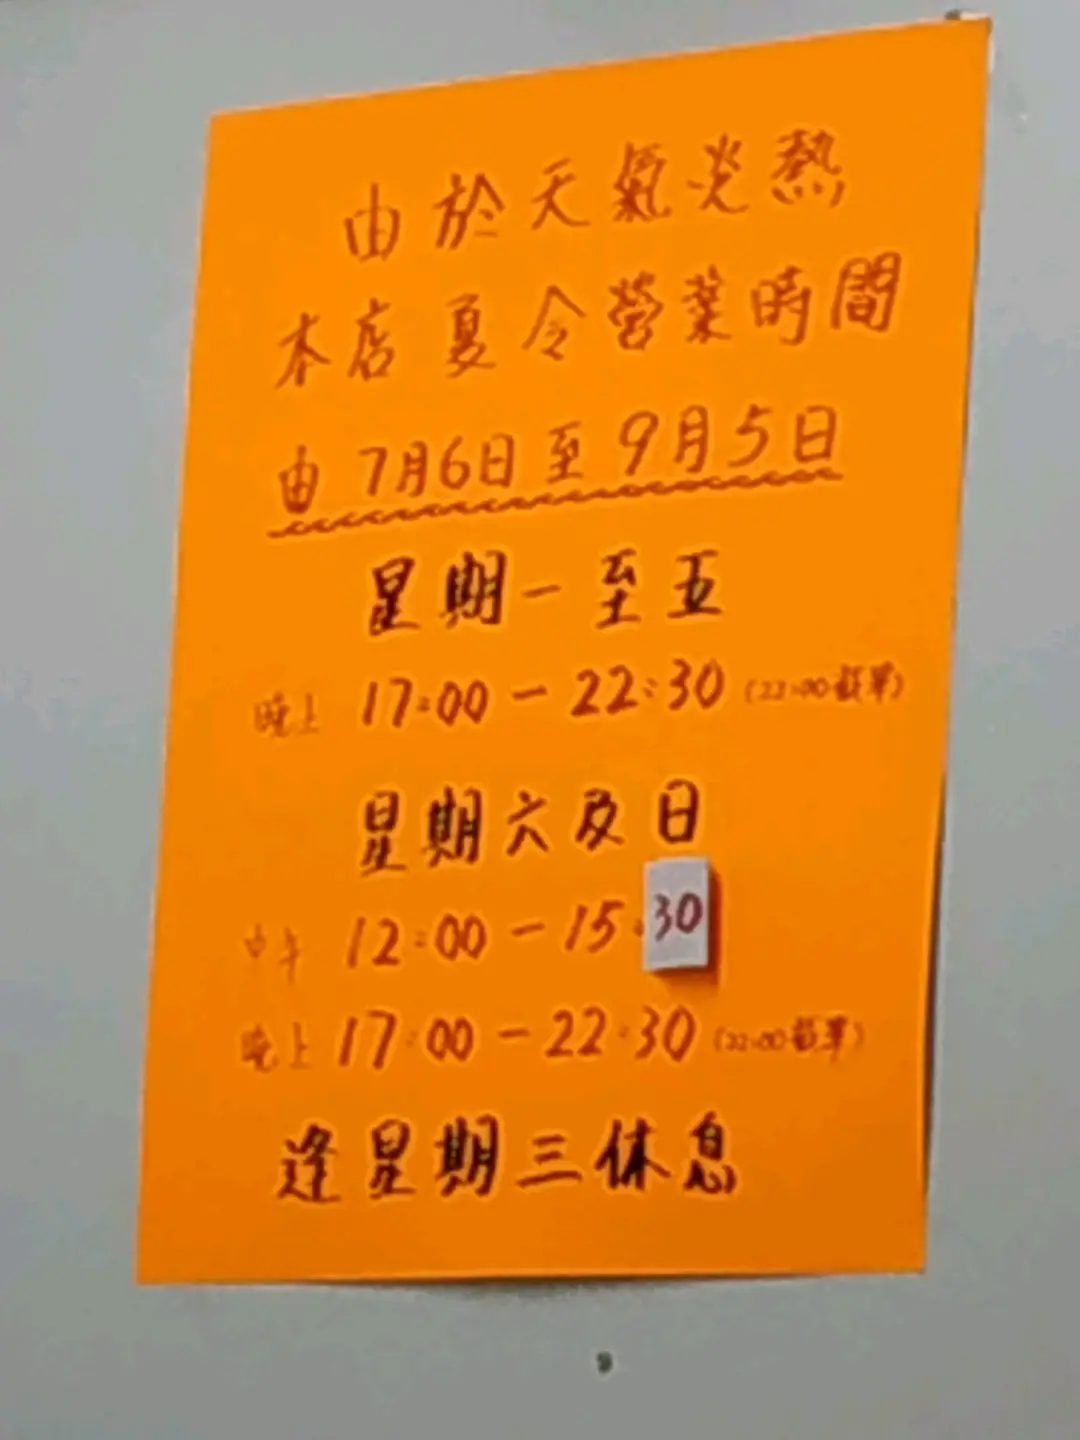 由於天氣炎熱
本店夏令營業時間
由7月6日至9月5日
星期一至五
晚上 17:00－22:30 (22:00截單)
星期六及日
中午 12:00－15:30
晚上 17:00－22:30 (22:00截單)
逢星期三休息